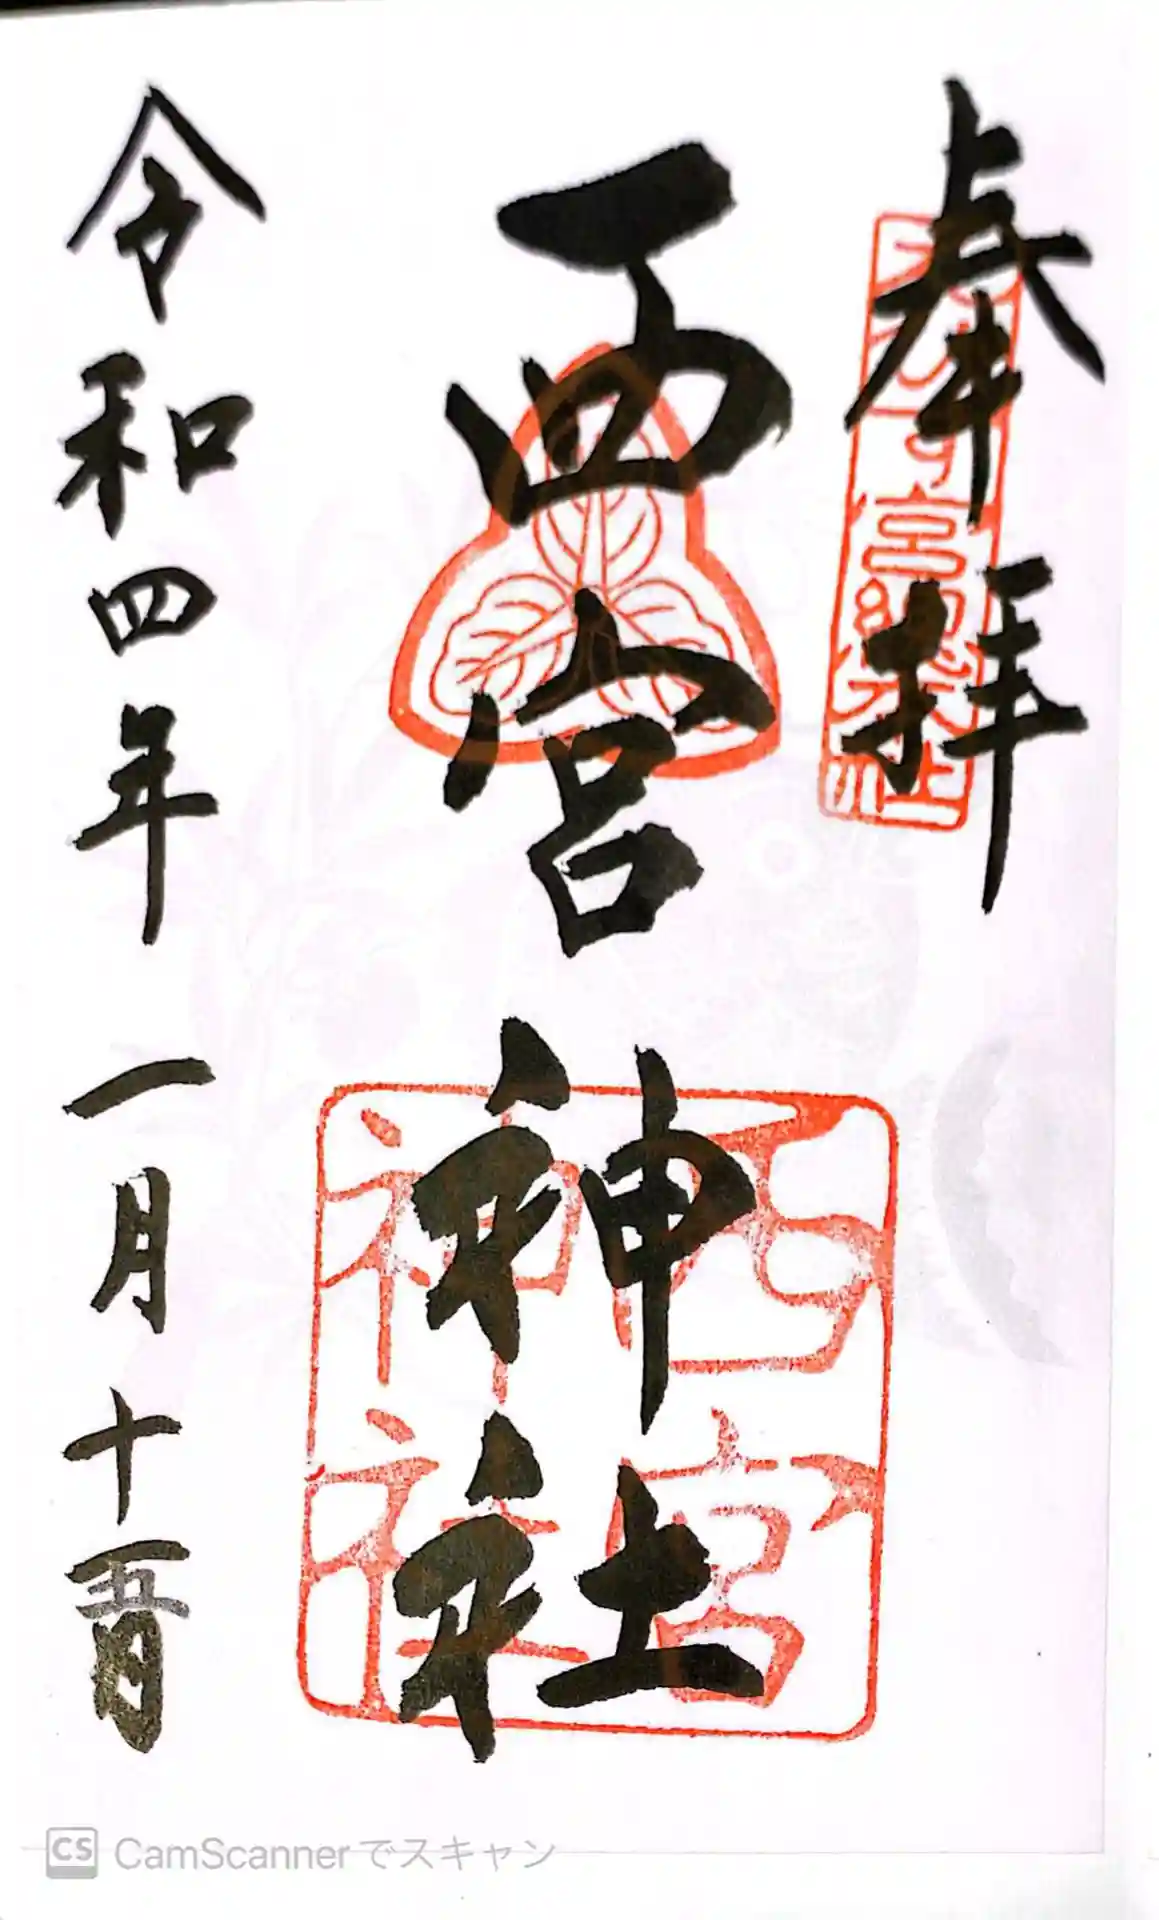 奉拝
西宮神社
西宮
神社
令和四年 一月十
CS CamScannerでスキャン